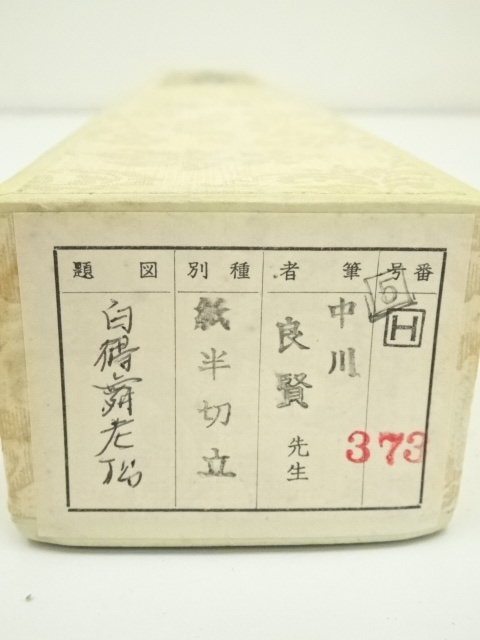 番号
5
H
373
筆者
中川
良賢
先生
種別
紙半切立
図題
白鶴舞老松